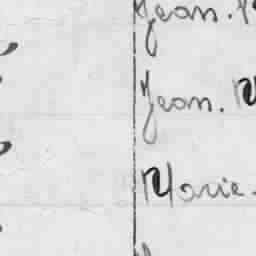 Jean.
Jean.
Marie.